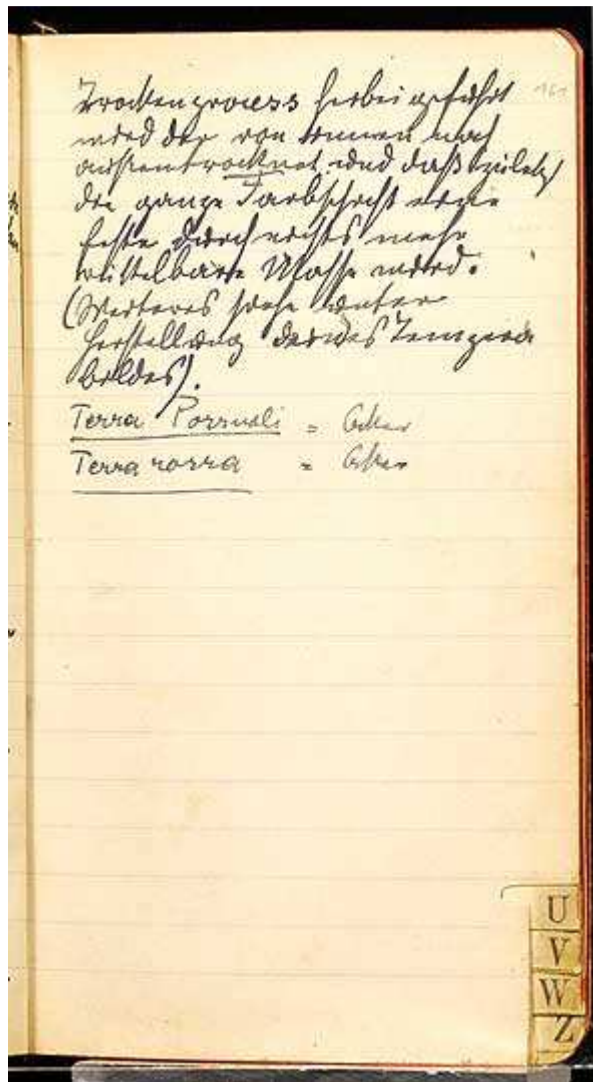 161
Trockenprocess herbei geführt
wird der von innen nach
außen trocknet und daß zuletzt
die ganze Farbschicht eine
feste durch nichts mehr
Masse wird.
(Weiteres siehe unter
Herstellung des Tempera
bildes).
Terra Pozzuoli = Ocker
Terra rozza = Ocker
U
V
W
Z